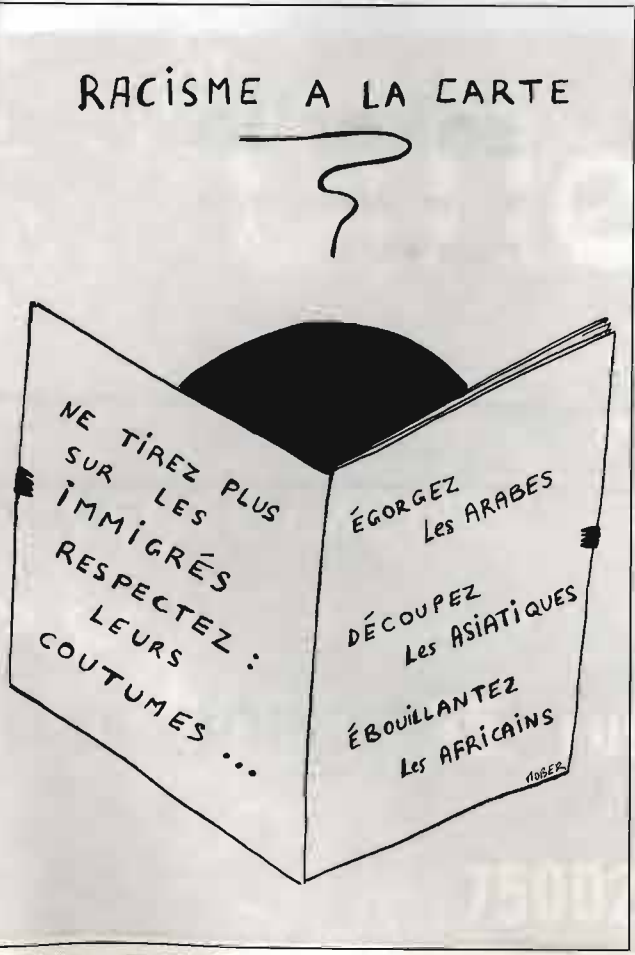 RACISME A LA CARTE
NE TIREZ PLUS
SUR LES
IMMIGRÉS
RESPECTEZ :
LEURS
COUTUMES ...
ÉGORGEZ
Les ARABES
DÉCOUPEZ
Les ASIATIQUES
ÉBOUILLANTEZ
Les AFRICAINS
75002